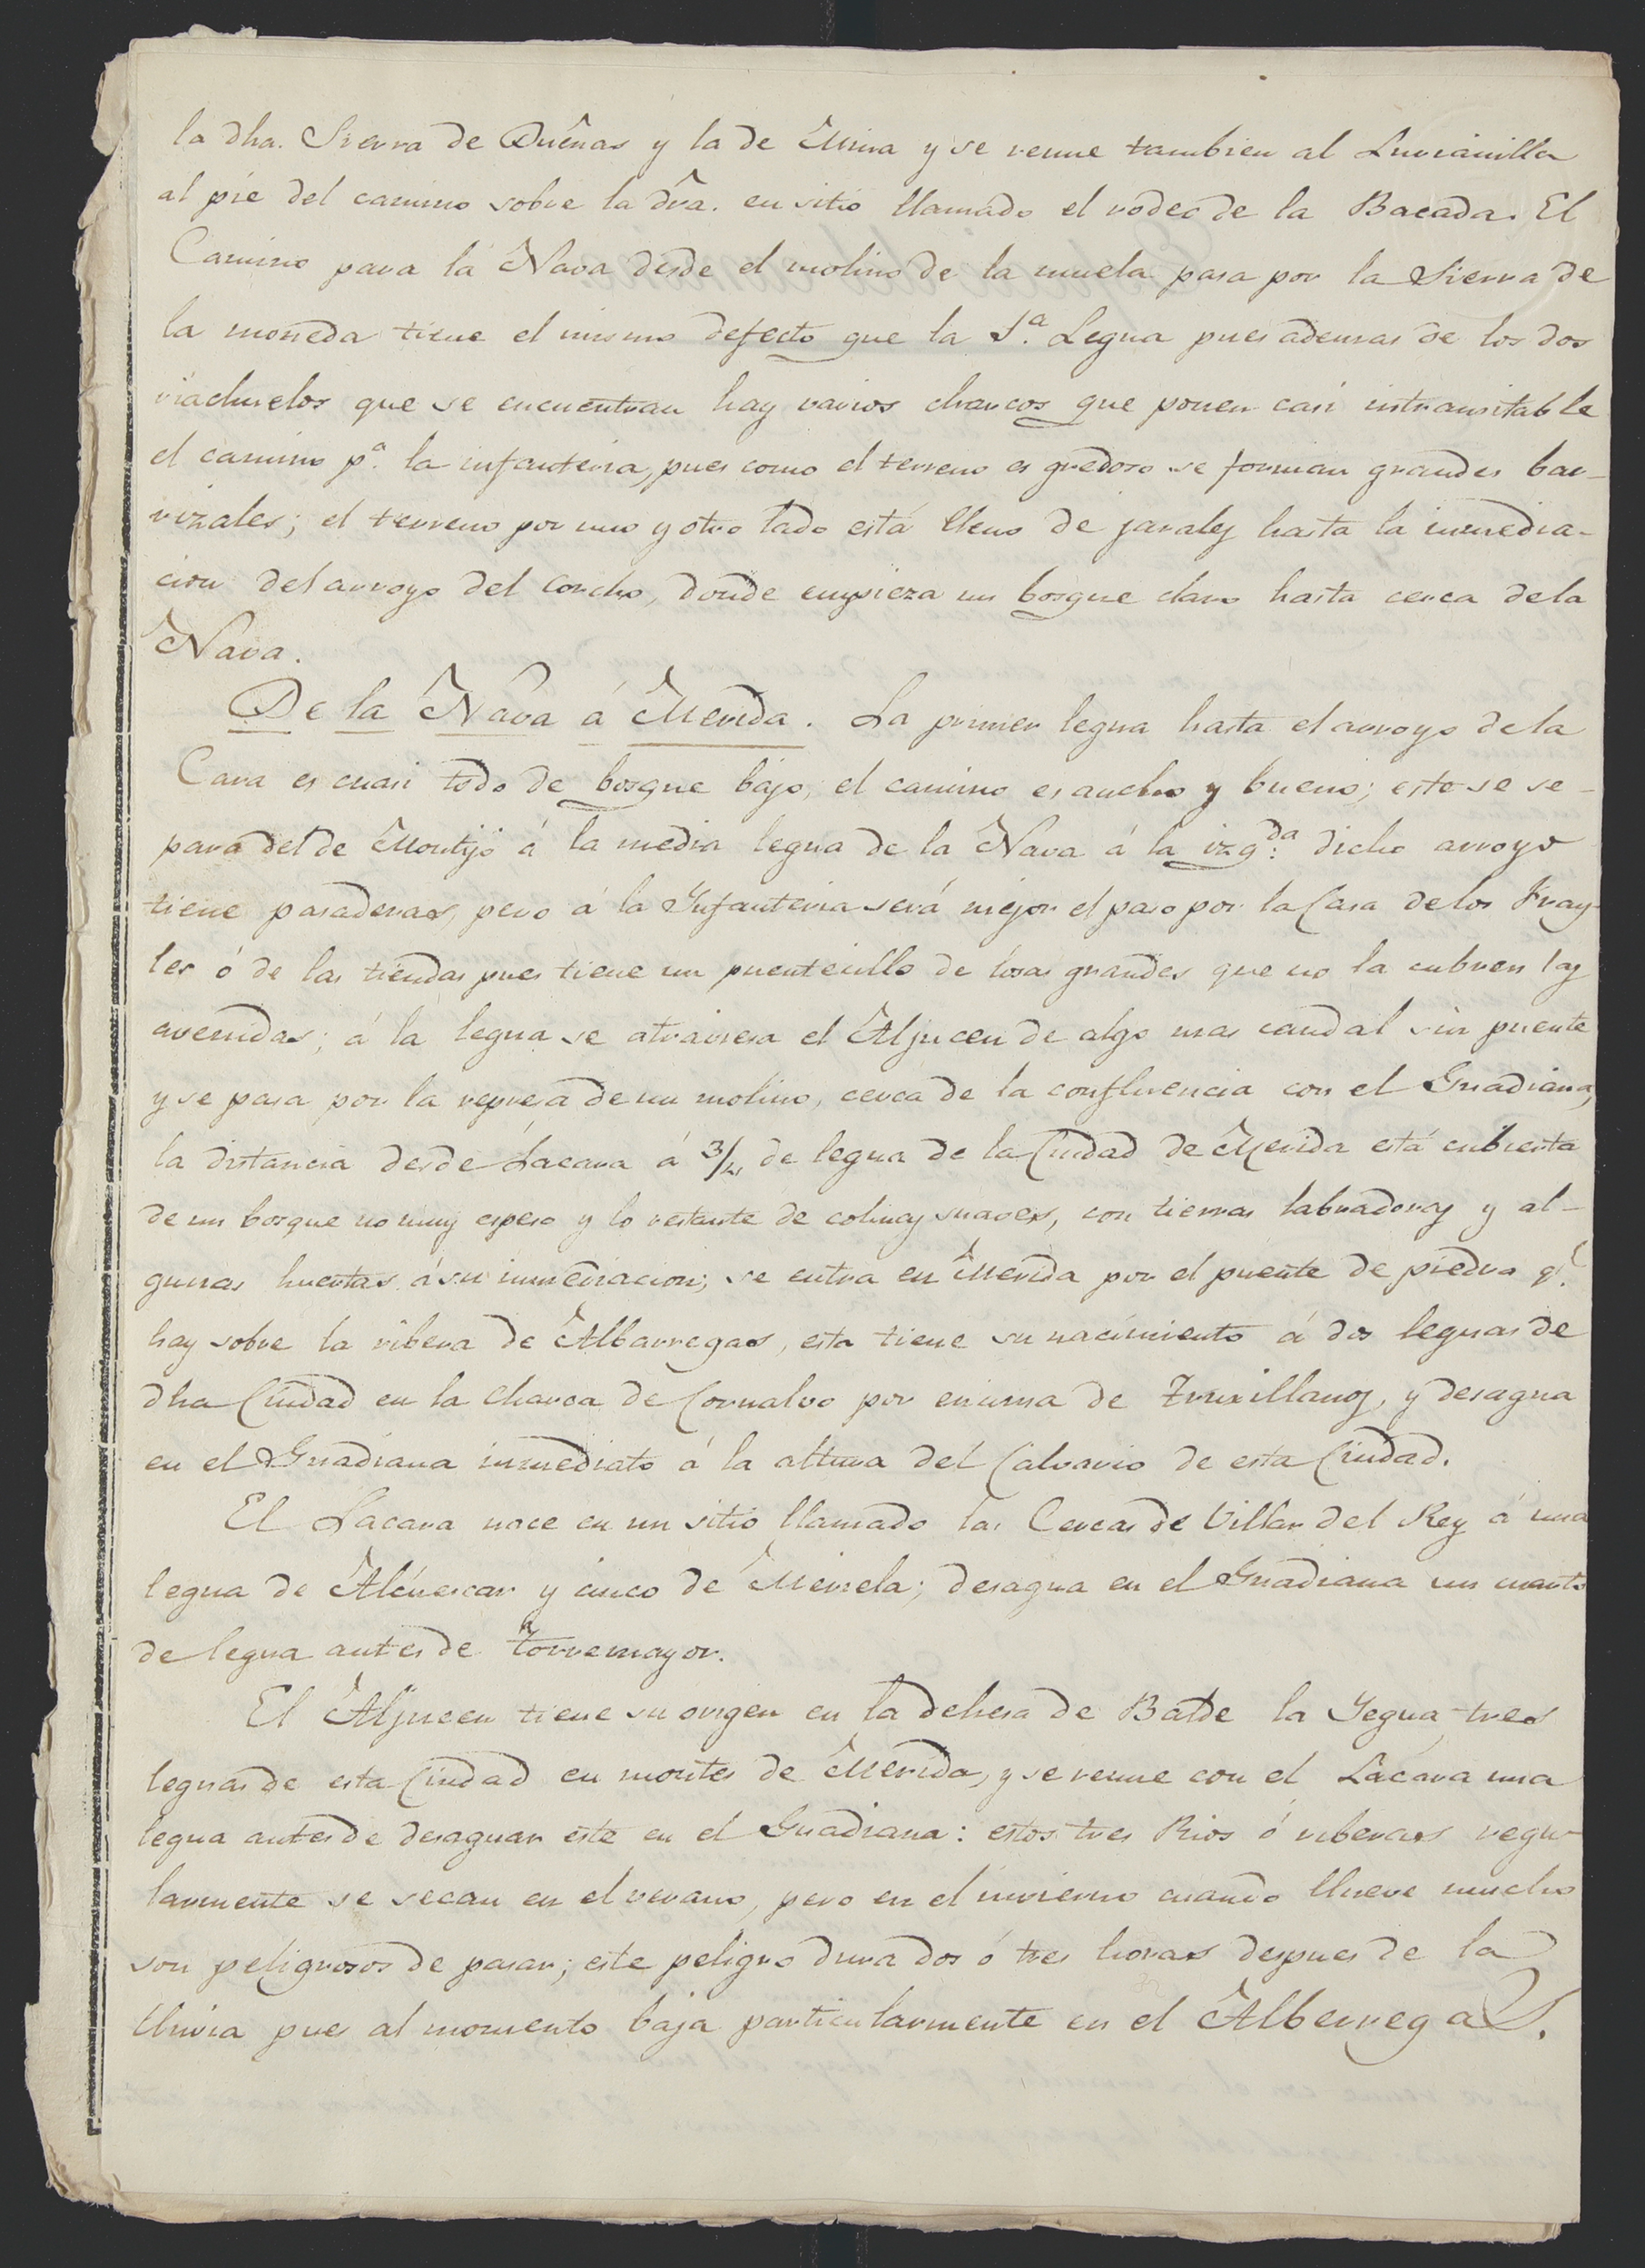 la dha. Sierra de Dueñas y la de Mina y se reune tambien al Lurianilla
al pie del camino sobre la dra. en sitio llamado el rodeo de la Bacada. El
Camino para la Nava desde el molino de la muela pasa por la Sierra de
la moneda tiene el mismo defecto que la 1.ª Legua pues ademas de los dos
riachuelos que se encuentran hay varios charcos que ponen casi intransitable
el camino p.ª la infanteria, pues como el terreno es gredoso se forman grandes bar-
rizales; el terreno por uno y otro lado está lleno de jarales hasta la inmedia-
cion del arroyo del Corcho, donde empieza un bosque claro hasta cerca dela
Nava.
De la Nava á Merida. La primer legua hasta el arroyo de la
Cara es cuasi todo de bosque bajo, el camino es ancho y bueno; este se se-
para del de Montijo á la media legua de la Nava á la izq.da dicho arroyo
tiene pasaderas, pero á la Infanteria será mejor el paso por la Casa delos Fray-
les ó de las tiendas pues tiene un puentecillo de losas grandes que no la cubren las
avenidas; á la legua se atraviesa el Aljucen de algo mas caudal sin puente
y se pasa por la represa de un molino, cerca de la confluencia con el Guadiana,
la distancia desde Lacara á 3/4 de legua de la Ciudad de Merida está cubierta
de un bosque no muy espeso y lo restante de colinas suaves, con tierras labradoras y al-
gunas huertas á su inmediacion; se entra en Merida por el puente de piedra q.e
hay sobre la ribera de Albarregas, esta tiene su nacimiento á dos leguas de
dha Ciudad en la Charca de Cornalvo por encima de Truxillanos, y desagua
en el Guadiana inmediato á la altura del Calvario de esta Ciudad.
El Lacara nace en un sitio llamado las Cercas de Villar del Rey á una
legua de Alcuescar y cinco de Mereda; desagua en el Guadiana un cuarto
de legua antes de torremayor.
El Aljucen tiene su origen en la dehesa de Balde la Yegua tres
leguas de esta Ciudad en montes de Merida, y se reune con el Lacara una
legua antes de desaguar este en el Guadiana: estos tres Rios ó riberas regu-
larmente se secan en el verano, pero en el invierno cuando llueve mucho
son peligrosos de pasar; este peligro dura dos ó tres horas despues de la
lluvia pues al momento baja particularmente en el Alberregas.